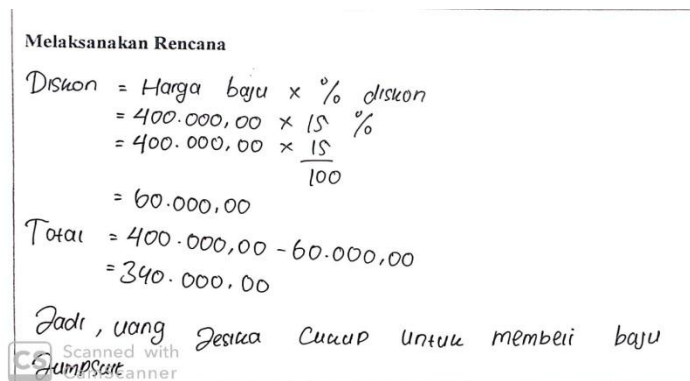 Melaksanakan Rencana
Diskon = Harga baju x % diskon
= 400.000,00 x 15 %
= 400.000,00 x 15
100
= 60.000,00
Total = 400.000,00 - 60.000,00
= 340.000,00
Jadi, uang Jesika cukup untuk membeli baju
Jumpsuit
CS Scanned with
CamScanner